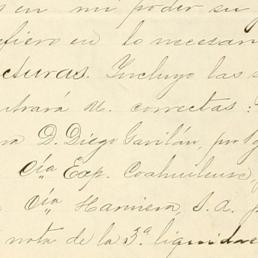 s en mi poder su g
efiero en lo necesar
cturas. Incluyo las s
ntrará U. correctas:
ra D. Diego Gavilán, por
Cía Exp. Coahuilense,
Cía Harinera, S. A. p
nota de la 3ª liquidac